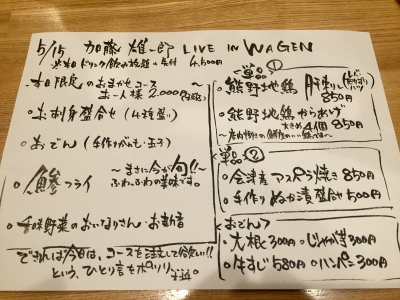 5/15 加藤雄一郎 LIVE IN WAGEN
4,500円
本日限定のおまかせコース
お一人様 2,000円
・お刺身盛合せ (4種盛り)
・おでん (手作りがんも・玉子)
・鰺フライ
〜まさに今が旬!!〜
ふわふわの美味です。
・香味野菜のおいなりさん・お新香
できれば今日は、コースを注文して欲しい!!
という、ひとり言をポソリ
<単品> ①
・熊野地鶏 肝刺し
850円
・熊野地鶏からあげ
大きめ4個 850円
<単品> ②
・会津産アスパラ焼き 850円
・手作りぬか漬盛合せ 500円
<おでん>
・大根 300円 ・じゃが芋 300円
・牛すじ 580円 ・ハンペン 300円